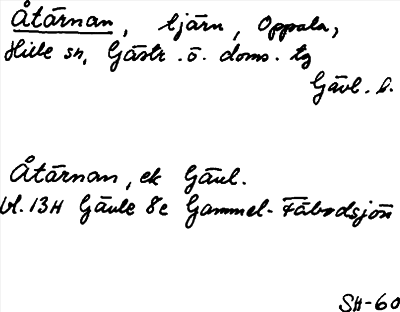 Åtärnan, tjärn, Oppala,
Hille sn, Gästr. ö. doms. tg
Gävl. l.
Åtärnan, ek Gävl.
bl. 13H Gävle 8c Gammel-Fäbodsjön
SH-60